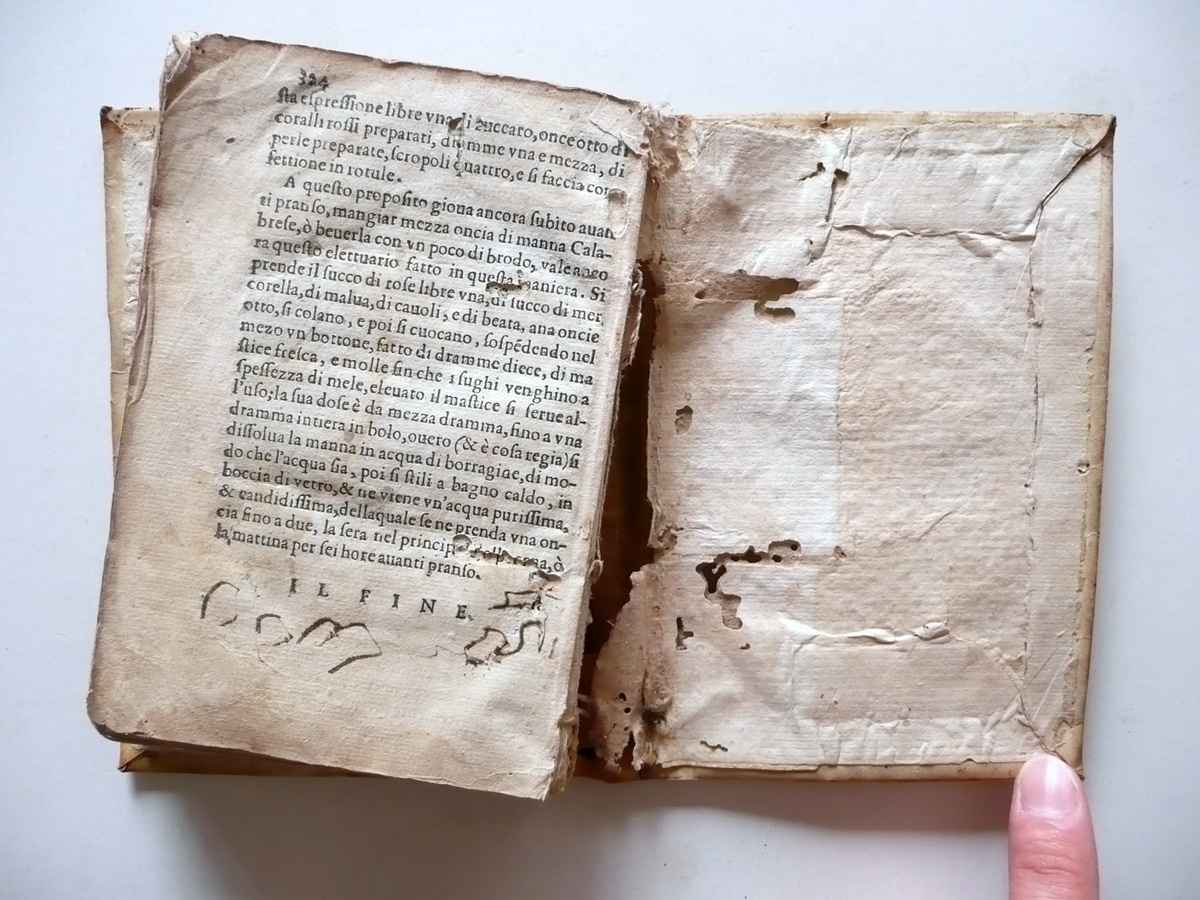 324
ſta eſpreſſione libre vna di zuccaro, once otto di
coralli roſſi preparati, dramme vna e mezza, di
perle preparate, ſcropoli quattro, e ſi faccia con
fettione in rotule.
A queſto propoſito gioua ancora ſubito auan
ti pranſo, mangiar mezza oncia di manna Cala-
breſe, ò beuerla con vn poco di brodo, vale anco
ra queſto elettuario fatto in queſta maniera. Si
prende il ſucco di roſe libre vna, di ſucco di mer
corella, di malua, di cauoli, e di beata, ana oncie
otto, ſi colano, e poi ſi cuocano, ſoſpēdendo nel
mezo vn bottone, fatto di dramme diece, di ma
ſtice freſca, e molle fin che i ſughi venghino a
ſpeſſezza di mele, eleuato il maſtice ſi ſerue al-
l'uſo; la ſua doſe è da mezza dramma, fino a vna
dramma intiera in bolo, ouero (& è coſa regia) ſi
diſſolua la manna in acqua di borragine, di mo-
do che l'acqua ſia, poi ſi ſtili a bagno caldo, in
boccia di vetro, & ne viene vn'acqua puriſſima,
& candidiſſima, della quale ſe ne prenda vna on-
cia fino a due, la ſera nel princip ò
la mattina per ſei hore auanti pranſo.
IL FINE.